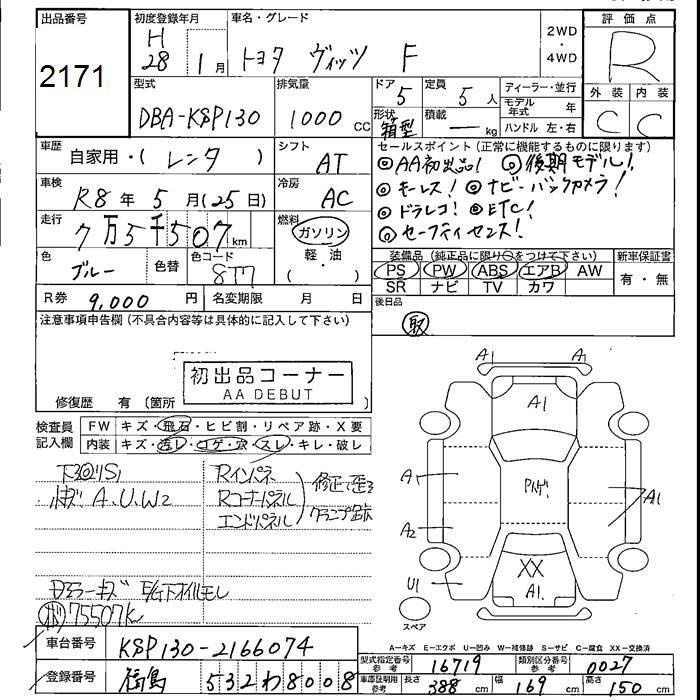 出品番号 2171
初度登録年月 H28年1月
車名・グレード トヨタ ヴィッツ F
2WD・4WD
評価点 R
外装 C 内装 C
型式 DBA-KSP130
排気量 1000 CC
ドア 5 定員 5人
形状 箱型 積載 — kg
ディーラー・並行
モデル年式 年
ハンドル 左・右
車歴 自家用・(レンタ)
シフト AT
車検 R8年5月(25日)
冷房 AC
走行 7万5千507km
燃料 ガソリン 軽・油 ( )
色 ブルー 色替 色コード 8T7
R券 9,000円 名変期限 月 日
セールスポイント(正常に機能するものに限ります)
◎AA初出品! ◎後期モデル!
◎キーレス! ◎ナビ・バックカメラ!
◎ドラレコ! ◎ETC!
◎セーフティセンス!
装備品(純正品に限り○をつけて下さい) 新車保証書
PS PW ABS エアB AW 有・無
SR ナビ TV カワ
後日品
取
注意事項申告欄(不具合内容等は具体的に記入して下さい)
初出品コーナー
AA DEBUT
修復歴 有(箇所
検査員記入欄
FW キズ・飛石・ヒビ割・リペア跡・X要
内装 キズ・汚レ・コゲ・穴・スレ・キレ・破レ
A.U.W2
Rインパネ
Rコーナーパネル
エンドパネル
修正
クランプ跡
E/G下オイルモレ
75507K
A1 A1
A1
A1
A2
U1
A1
XX
A1.
スペア
A-キズ E-エクボ U-凹み W-補修跡 S-サビ C-腐食 XX-交換済
車台番号 KSP130-2166074
登録番号 福島 532わ8008
型式指定番号 参考 16719
類別区分番号 参考 0027
車庫証明用 参考 長さ 388 cm 幅 169 cm 高さ 150 cm